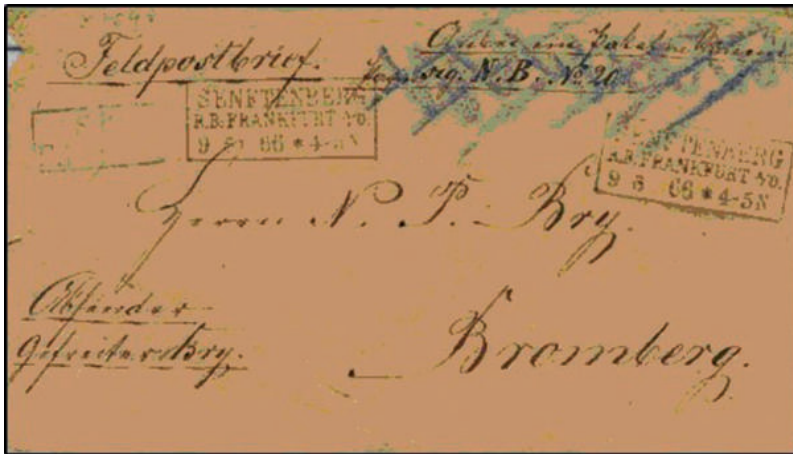 Feldpostbrief.
Anbei ein Paket
sig. N. B. No 20
SENFTENBERG
R.B. FRANKFURT a/O.
9 6 66 * 4-5 N
SENFTENBERG
R.B. FRANKFURT a/O.
9 6 66 * 4-5N
Herrn N. P. Bry.
Absender
Gefreiter Bry.
Bromberg.